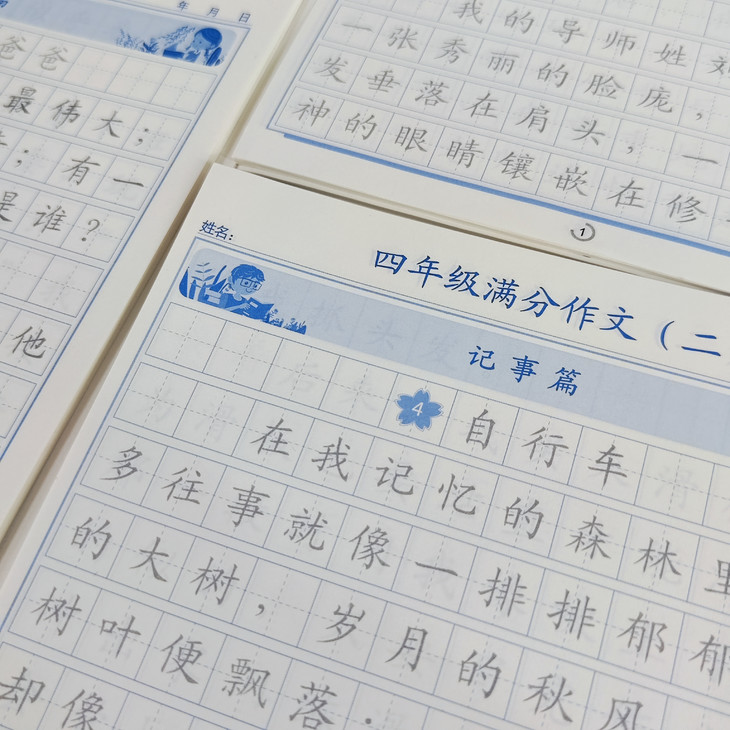 年 月 日
爸爸
最伟大；
；有一
是谁？
他
我的导师姓刘
一张秀丽的脸庞，
发垂落在肩头，一
神的眼睛镶嵌在修
1
姓名：
四年级满分作文（二
记事篇
4 自行车
在我记忆的森林里
多往事就像一排排郁郁
的大树，岁月的秋风
树叶便飘落．
却像